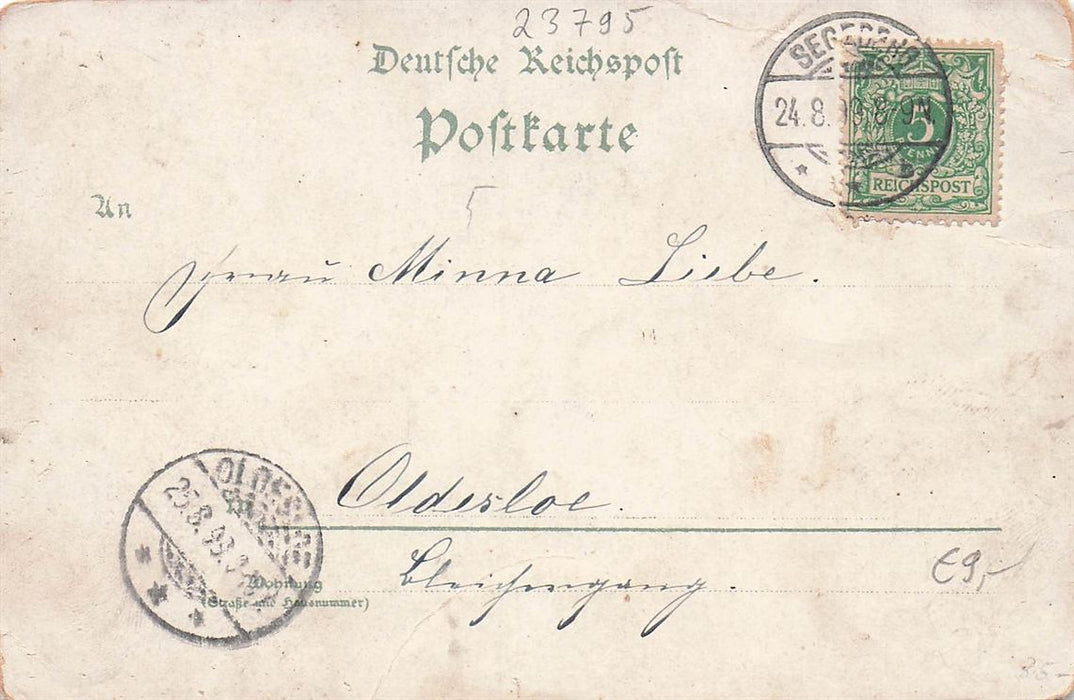 23795
Deutsche Reichspost
Postkarte
SEGEBERG
24.8. 8-9N.
5
REICHSPOST
An
5
Frau Minna Liebe.
Oldesloe.
OLDESLOE
25.8.98.
Wohnung
(Straße und Hausnummer)
Bleichergang.
€9,-
35.-